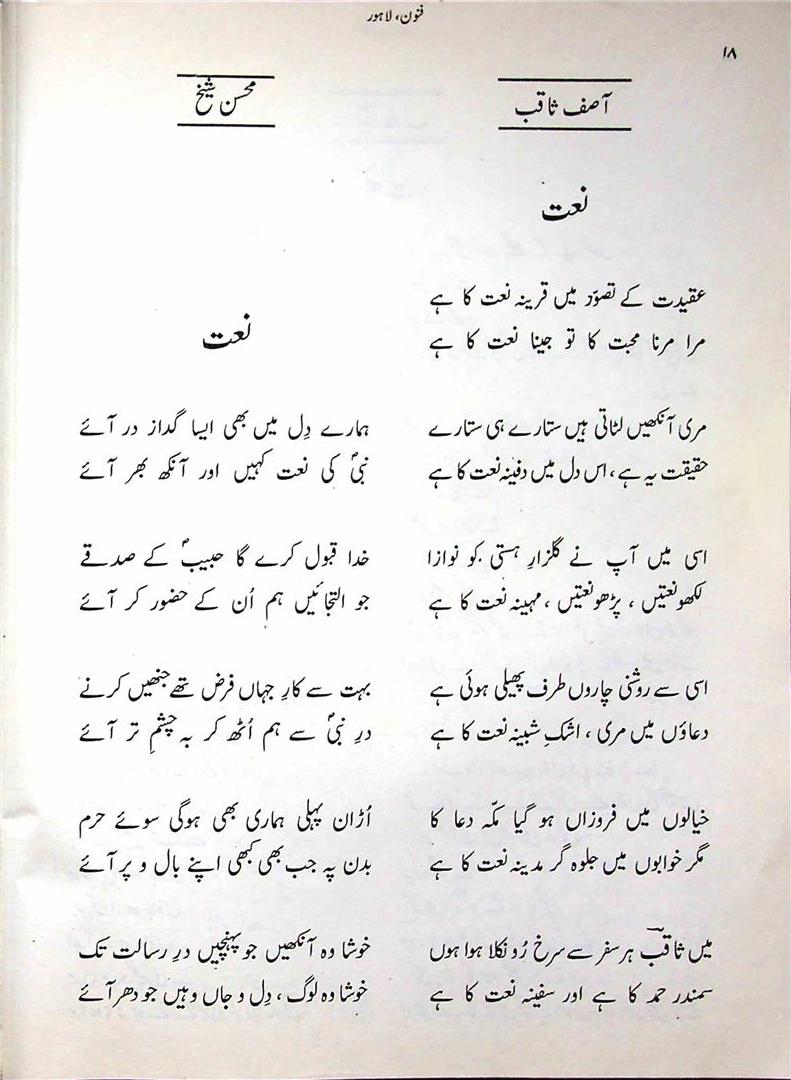 فنون، لاہور
۱۸
آصف ثاقب
نعت
عقیدت کے تصوّر میں قرینہ نعت کا ہے
مرا مرنا محبت کا تو جینا نعت کا ہے
مری آنکھیں لٹاتی ہیں ستارے ہی ستارے
حقیقت یہ ہے، اس دل میں دفینہ نعت کا ہے
اسی میں آپ نے گلزارِ ہستی کو نوازا
لکھو نعتیں، پڑھو نعتیں، مہینہ نعت کا ہے
اسی سے روشنی چاروں طرف پھیلی ہوئی ہے
دعاؤں میں مری، اشکِ شبینہ نعت کا ہے
خیالوں میں فروزاں ہو گیا مکّہ دعا کا
مگر خوابوں میں جلوہ گر مدینہ نعت کا ہے
میں ثاقبؔ ہر سفر سے سرخ رُو نکلا ہوا ہوں
سمندر حمد کا ہے اور سفینہ نعت کا ہے
محسن شیخ
نعت
ہمارے دِل میں بھی ایسا گداز در آئے
نبیؐ کی نعت کہیں اور آنکھ بھر آئے
خدا قبول کرے گا حبیبؐ کے صدقے
جو التجائیں ہم اُن کے حضور کر آئے
بہت سے کارِ جہاں فرض تھے جنھیں کرنے
درِ نبیؐ سے ہم اُٹھ کر بہ چشمِ تر آئے
اُڑان پہلی ہماری بھی ہوگی سوئے حرم
بدن پہ جب بھی کبھی اپنے بال و پر آئے
خوشا وہ آنکھیں جو پہنچیں درِ رسالت تک
خوشا وہ لوگ، دِل و جاں وہیں جو دھر آئے